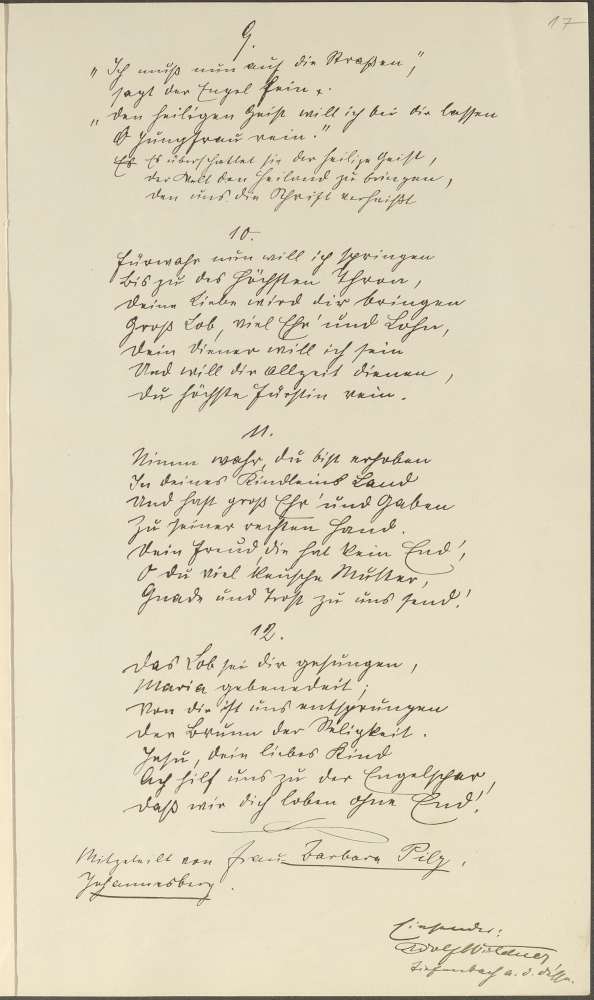 17
9.
"Ich muß nun auf die Straßen",
sagt der Engel fein.
"Den heiligen Geist will ich bei dir lassen
O Jungfrau rein."
Es überschattet sie der heilige Geist,
der Welt den Heiland zu bringen,
den uns die Schrift verheißt
10.
Fürwahr nun will ich springen
Bis zu des Höchsten Thron,
Deine Liebe wird dir bringen
Groß Lob, viel Ehr' und Lohn,
Dein Diener will ich sein
Und will dir allzeit dienen,
Du höchste Fürstin rein.
11.
Nimm wahr, du bist erhoben
In deines Kindleins Land
Und hast groß Ehr' und Gaben
Zu seiner rechten Hand.
Dein Freud, die hat kein End',
O du viel keusche Mutter,
Gnade und Trost zu uns send'!
12.
Das Lob sei dir gesungen,
Maria gebenedeit;
Von dir ist uns entsprungen
Der Brunn der Seligkeit.
Jesu, dein liebes Kind
Ach hilf uns zu der Engelschar,
Daß wir dich loben ohne End'!
Mitgeteilt von Frau Barbara Pilz,
Johannesberg.
Einsender:
Adolf Waldner
Tiefenbach a. d. Desse.